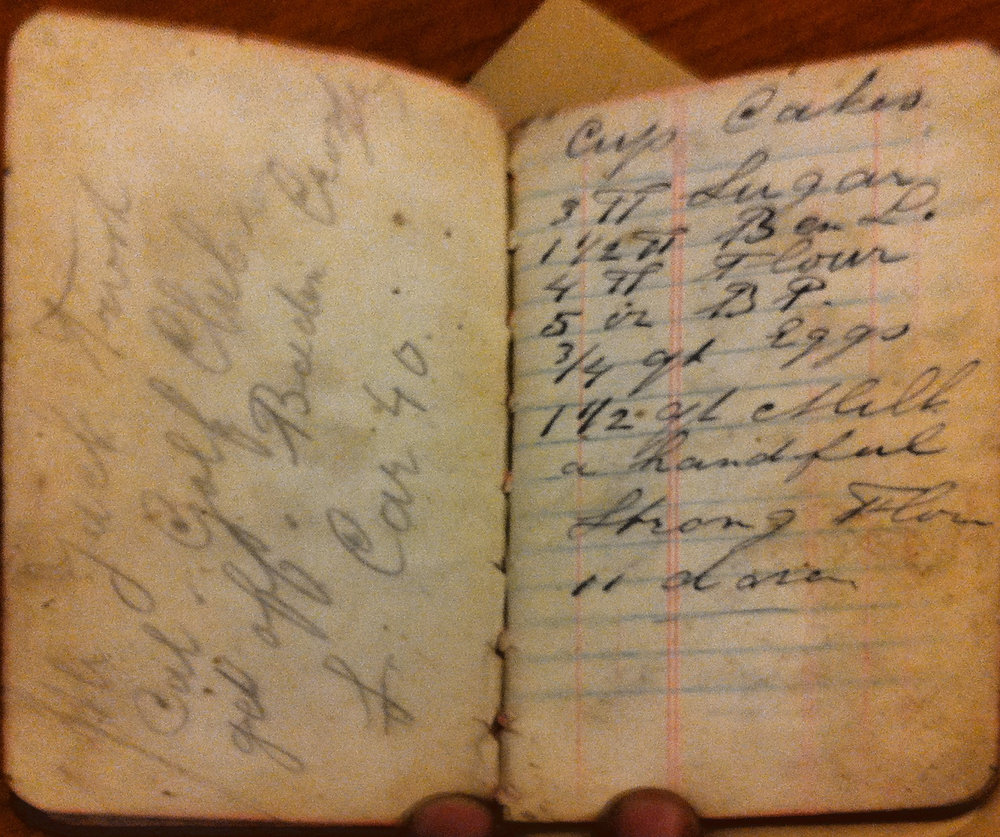 Jack Frost
Cal. Golf Club
get off. Baden
Car 40.
Cup Cakes.
3 ℔ Sugar
1 1/2 ℔ B an L.
4 ℔ Flour
5 oz B P.
3/4 qt Eggs
1 1/2 qt Milk
a handful
Strong Flour
11 dozen